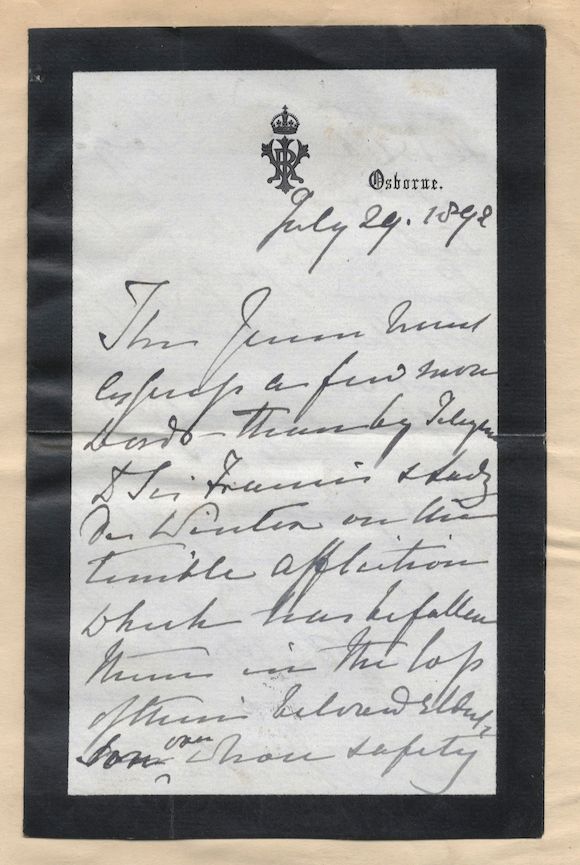 VRI
Osborne.
July 29. 1892
The Queen must
express a few more
words than by Telegram
to Sir Francis & Lady
De Winton on the
terrible affliction
which has befallen
them in the loss
of their beloved Eldest
Son over whose safety